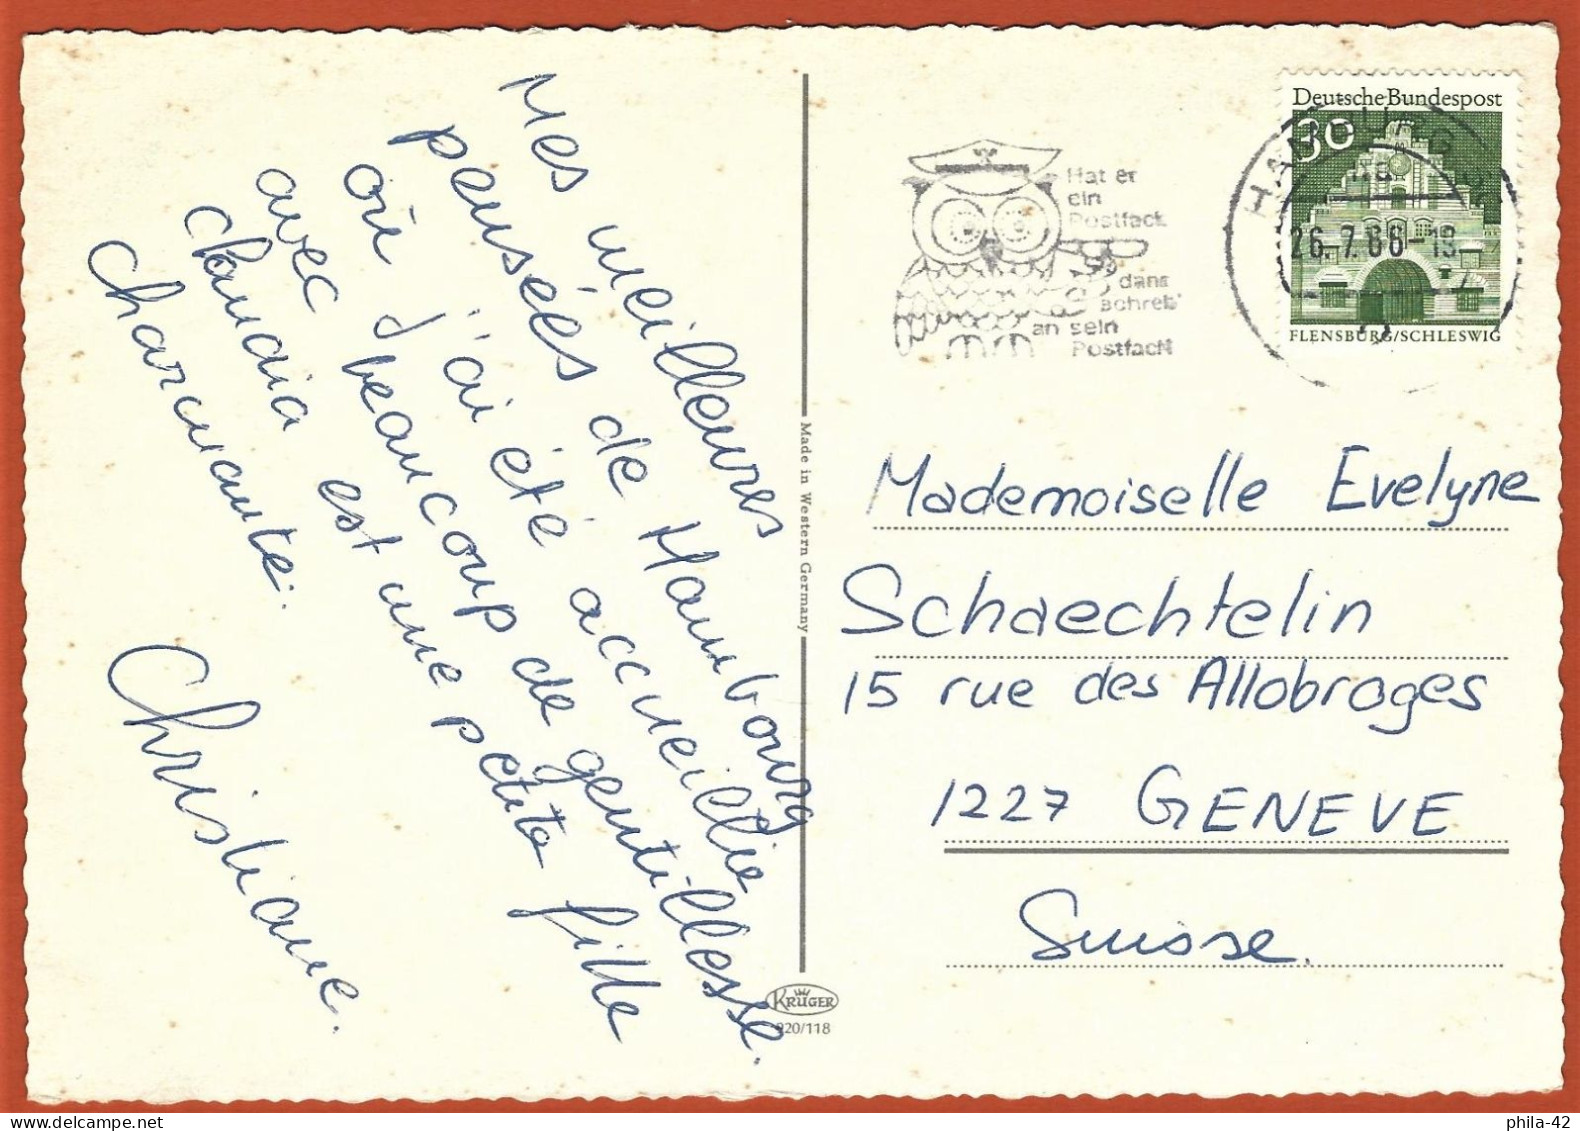 Mes meilleures
pensées de Hambourg
où j'ai été accueillie
avec beaucoup de gentillesse.
Claudia est une petite fille
charmante.
Christiane.
Made in Western Germany
KRÜGER
920/118
Hat er
ein
Postfach
dann
schreib'
an sein
Postfach
HAMBURG
26.7.68-19
Deutsche Bundespost
30
FLENSBURG/SCHLESWIG
Mademoiselle Evelyne
Schaechtelin
15 rue des Allobroges
1227 GENEVE
Suisse.
phila-42